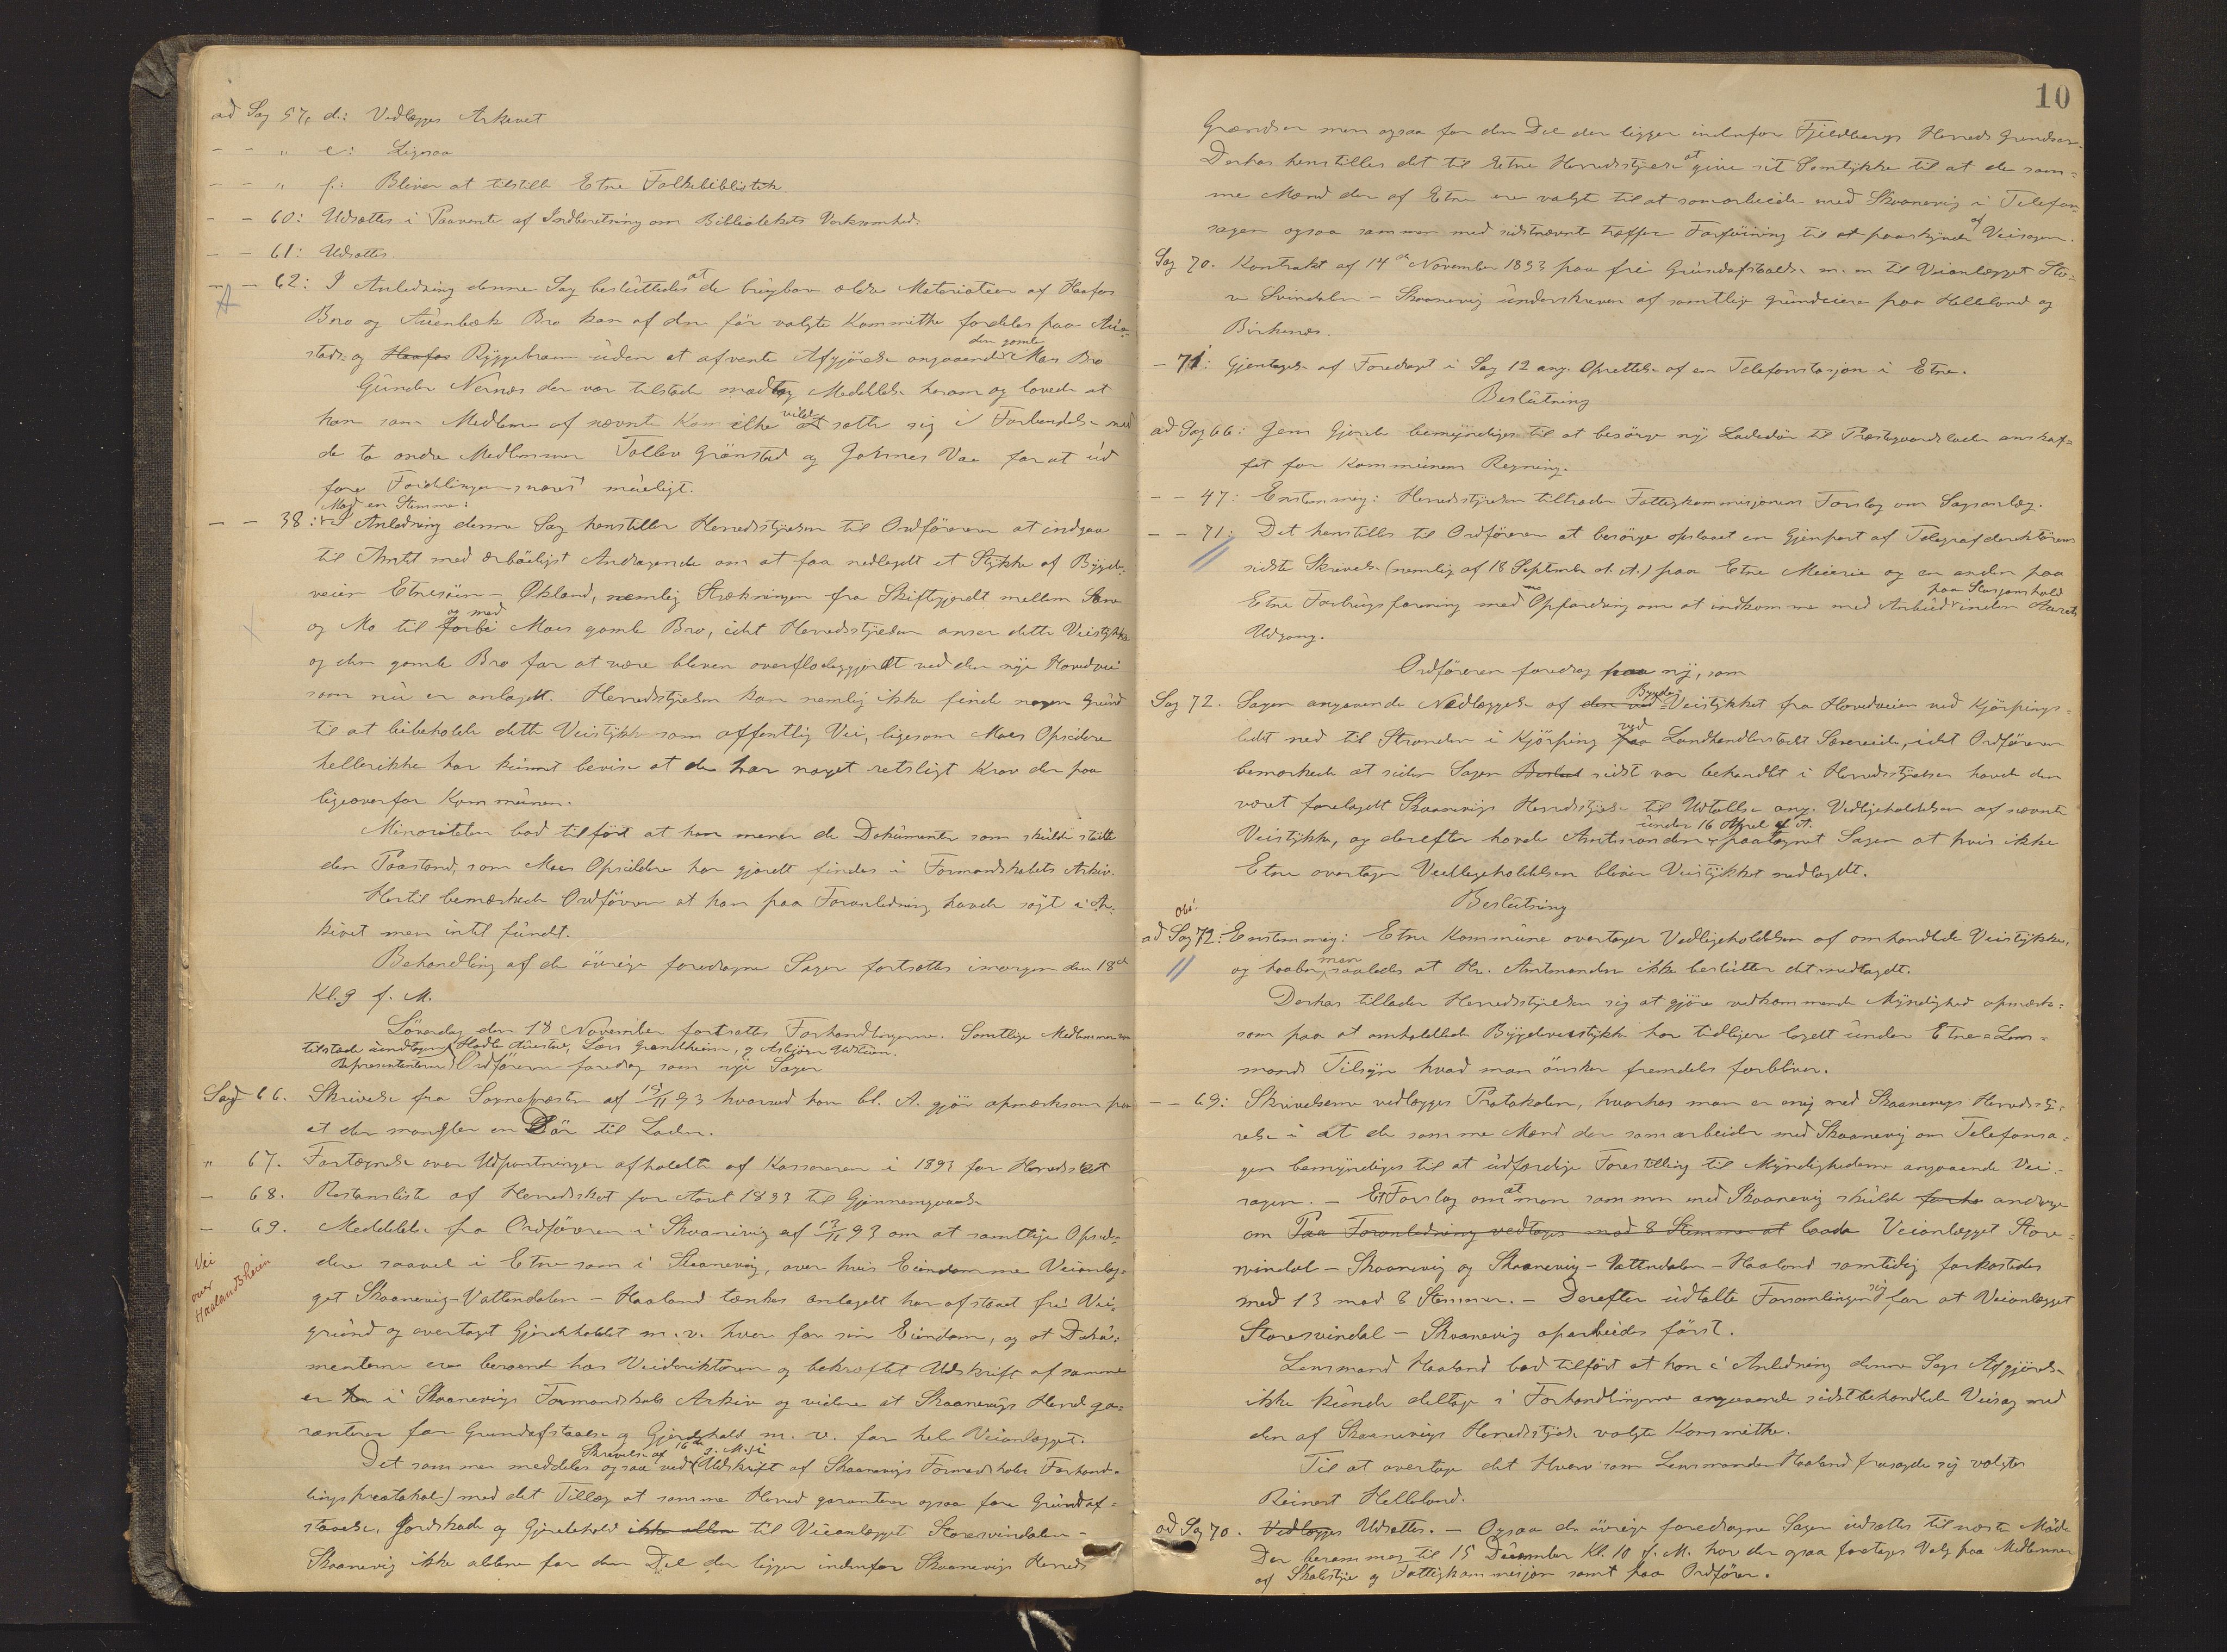 ad Sag 57, d.: Vedlægges Arkivet
- - " e: Ligesaa
- - " f.: Bliver at tilstille Etne Folkebibliothek.
- - 60: Udsættes i Paavente af Indberetning om Bibliotekets Virksomhed.
- - 61: Udsættes.
- - 62: I Anledning denne Sag besluttedes at de brugbare ældre Materialier af Haafos
Bro og Auenbæk Bro kan af den før valgte Kommitthe fordeles paa
stads og Haafos Ryggebroen uden at afvente Afgjörelse angaaende den gamle Maes Bro
Gunder Nernæs der var tilstede modtog Meddelelse herom og lovede at
han som Medlem af nævnte Komitthe vilde at sætte sig i Forbindelse med
de to andre Medlemmer Tollev Grönstad og Johannes Vae for at ud
føre Fordelingen snarest mueligt.
Mod en Stemme:
- - 38: I Anledning denne Sag henstiller Herredsstyrelsen til Ordföreren at indgaa
til Amtet med ærbödigst Andragende om at faa nedlagdt et Stykke af Bygde-
veien Etnesöen - Økland, nemlig Strækningen fra Skiftegjerdt mellem Sævre
og Mo til forbi og med Maes gamle Bro, idet Herredsstyrelsen anser dette Veistykke
og den gamle Bro for at være bleven overflødiggjordt ved den nye Hovedvei
som nu er anlagdt. Herredsstyrelsen kan nemlig ikke finde nogen Grund
til at bibeholde dette Veistykke som offentlig Vei, ligesom Maes Opsiddere
hellerikke har kunnet bevise at de har noget retsligt Krav der paa
ligeoverfor Kommunen.
Minoriteten bad tilført at han mener de Dokumenter som skulde støtte
den Paastand, som Maes Opsiddere har gjordt findes i Formandskabets Arkiv.
Hertil bemærkede Ordföreren at han paa Foranledning havde søgt i Ar-
kivet men intet fundt.
Behandling af de övrige foredragne Sager fortsættes imorgen den 18de
Kl. 9 f. M.
Löverdag den 18 November fortsattes Forhandlingerne. Samtlige Medlemmer var
tilstede undtagen Halle Austevø, Lars Grandheim, og Asbjørn Udstuen.
Repræsentanterne Ordføreren foredrog som nye Sager
Sag 66. Skrivelse fra Sognepræsten af 15/11 93 hvorved han bl. A. gjör opmærksom paa
at der mangler en Dör til Laden.
" 67. Fortegnelse over Udpantninger afholdte af Kassereren i 1893 for Herredsskat
- 68. Restanseliste af Herredsskat for Aaret 1893 til Gjennemgaaelse
- 69. Meddelelse fra Ordföreren i Skaanevig af 17/11 93 om at samtlige Opsid-
Vei over Haalandsheien
dere saavel i Etne som i Skaanevig, over hvis Eiendomme Veianlæg-
get Skaanevig-Vattendalen - Haaland tænkes anlagdt har afstaaet fri Vei-
grund og overtaget Gjerdeholdet m. v. hver for sin Eiendom, og at Doku-
menterne ere beroende hos Veidirektøren og bekræftet Udskrift af samme
er her i Skaanevigs Formandskabs Arkiv og videre at Skaanevigs Herred ga-
ranterer for Grundafstaaelse og Gjerdehold m. v. for hele Veianlægget.
Det sammen meddeles ogsaa ved Skrivelse af 16de d. M. i (Udskrift af Skaanevigs Formandskabs Forhand-
lingsprotokol) med det Tillæg at samme Herred garanterer ogsaa fore Grundaf-
staaelse, Jordskade og Gjerdehold ikke allene til Veianlægget Storesvindalen -
Skaanevig ikke allene for den Del der ligger indenfor Skaanevigs Herreds
10
Grændser men ogsaa for den Del der ligger indenfor Fjeldbergs Herreds Grændser.
Derhos henstilles det til Etne Herredsstyrelse at give sit Samtykke til at de sam-
me Mænd der af Etne ere valgte til at samarbeide med Skaanevig i Telefon
sagen ogsaa sammen med sidstnævnte træffer Forføining til at paaskynde af Veisagen.
Sag 70. Kontrakt af 14de November 1893 paa fri Grundafstaaelse m. m til Veianlægget Sto-
re Svindalen - Skaanevig underskreven af samtlige grundeiere paa Helleland og
Birkenæs.
- 71: Gjentagelse af Foredraget i Sag 12 ang. Oprettelse af en Telefonstasjon i Etne.
Beslutning
ad Sag 66: Jens Gjerde bemyndiges til at besörge ny Ladedör til Præstegaardsladen anskaf-
fet for Kommunens Regning.
- - 47: Enstemmig: Herredsstyrelsen tiltræder Fattigkommisjonens Forslag om Sagsanlæg.
- - 71: Det henstilles til Ordføreren at besörge opslaaet en Gjenpart af Telegrafdirektörens
sidste Skrivelse (nemlig af 18 September d. A.) paa Etne Meierie og en anden paa
Etne Forbrugsforening med Opfordring om at indkomme med Anbud paa Stasjonshold inden Aarets
Udgang.
Ordföreren foredrog paa ny, som
Sag 72. Sagen angaaende Nedlæggelse af den ved Bygde-Veistykket fra Hovedveien ved Kjörpings-
ledt ned til Stranden i Kjörping paa ved Landhandlerstedt Særereide, idet Ordföreren
bemærkede at siden Sagen Beslut sidst var behandlet i Herredsstyrelsen havde den
været forelagdt Skaanevigs Herredsstyrelse til Udtalelse ang. Vedligeholdelsen af nævnte
Veistykke, og derefter havde Amtmanden under 16 April d. A. paategnet Sagen at hvis ikke
Etne overtager Vedligeholdelsen bliver Veistykket nedlagdt.
Beslutning
Obs!
ad Sag 72: Enstemmig: Etne Kommune overtager Vedligeholdelsen af omhandlede Veistykke,
og haaber man saaledes at Hr. Amtmanden ikke beslutter det nedlagdt.
Derhos tillader Herredsstyrelsen sig at gjöre vedkommende Myndighed opmærk-
som paa at omholdlede Bygdeveistykke har tidligere lagdt under Etne Lens-
mands Tilsyn hvad man önsker fremdeles forbliver.
- - 69: Skrivelserne vedlægges Protokolen, hvorhos man er enig med Skaanevigs Herredssty-
relse i at de samme Mænd der samarbeider med Skaanevig om Telefonsa-
gen bemyndiges til at udfærdige Forestilling til Myndighederne angaaende Vei-
sagen. - Et Forslag om at man sammen med Skaanevig skulde forho andrage
om Paa Foranledning vedtages med 8 Stemmer at baade Veianlægget Store-
svindal - Skaanevig og Skaanevig - Vattendalen - Haaland samtidig forkastedes
med 13 mod 8 Stemmer. - Derefter udtalte Forsamlingen sig for at Veianlægget
Storesvindal - Skaanevig oparbeides först.
Lensmand Haaland bad tilfört at han i Anledning denne Sags Afgjörelse
ikke kunde deltage i Forhandlingerne angaaende sidstbehandlede Veisag med
den af Skaanevigs Herredsstyrelse valgte Kommitthe.
Til at overtage det Hverv som Lensmanden Haaland frasagde sig valgtes
Reinert Helleland.
ad Sag 70. Vedlægges Udsættes. - Ogsaa de övrige foredragne Sager udsættes til næste Möde
Der berammes til 15 December Kl. 10 f. M. hvor der ogsaa foretages Valg paa Medlemmer
af Skolestyre og Fattigkommisjon samt paa Ordfører.